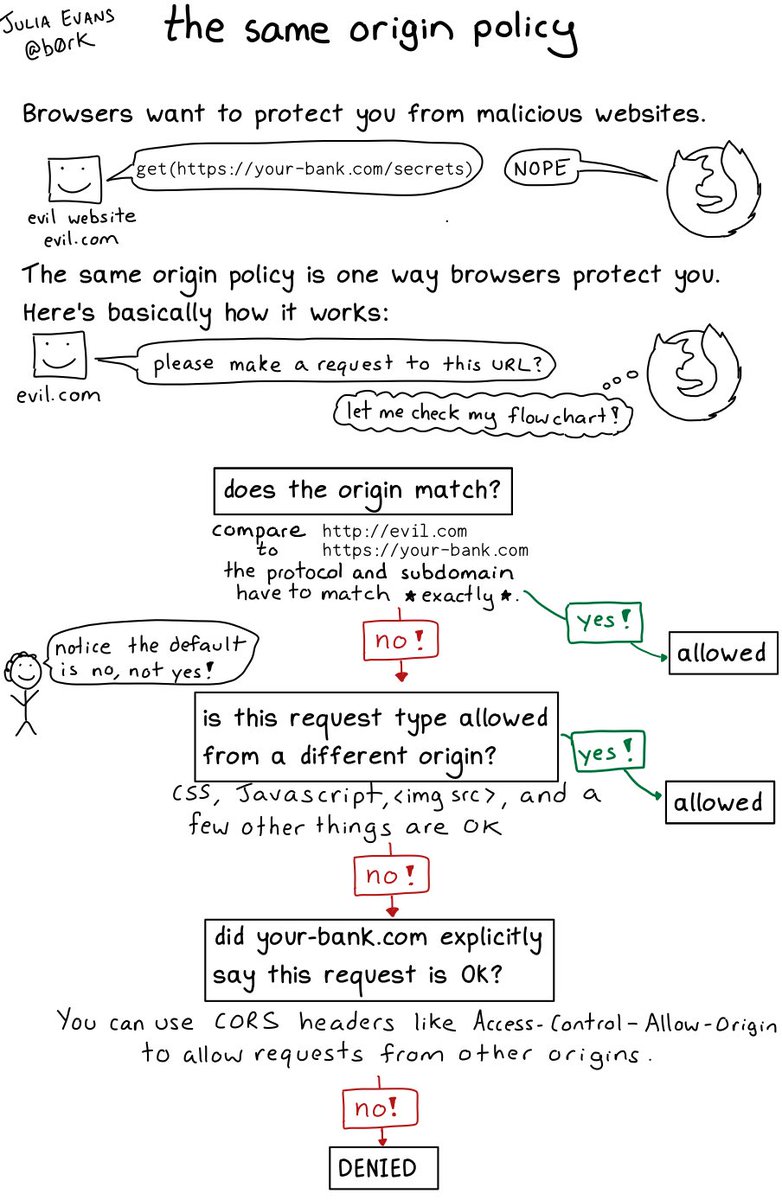 JULIA EVANS
@b0rk
the same origin policy
Browsers want to protect you from malicious websites.
get(https://your-bank.com/secrets)
NOPE
evil website
evil.com
The same origin policy is one way browsers protect you.
Here's basically how it works:
please make a request to this URL?
evil.com
let me check my flowchart!
does the origin match?
compare http://evil.com
to https://your-bank.com
the protocol and subdomain
have to match *exactly*.
yes!
no!
allowed
notice the default
is no, not yes!
is this request type allowed
from a different origin?
yes!
allowed
CSS, Javascript, <img src>, and a
few other things are OK
no!
did your-bank.com explicitly
say this request is OK?
You can use CORS headers like Access-Control-Allow-Origin
to allow requests from other origins.
no!
DENIED